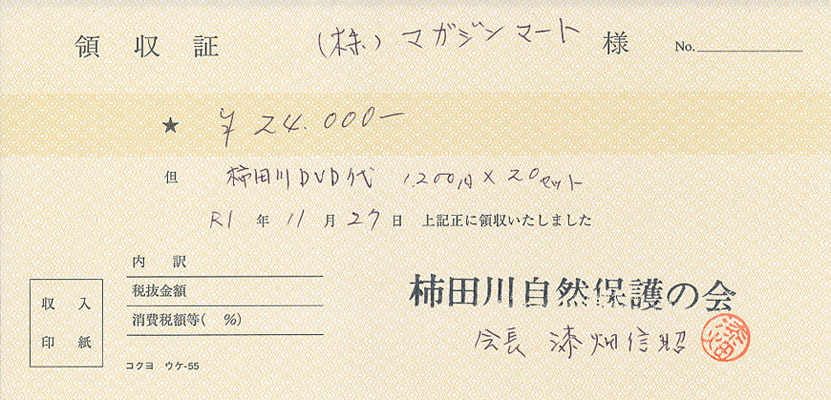 領収証 (株)マガジンマート 様 No.
★ ¥24.000-
但 柿田川DVD代 1.200円×20セット
R1年11月27日 上記正に領収いたしました
内訳
税抜金額
消費税額等( %)
収入
印紙
コクヨ ウケ-55
柿田川自然保護の会
会長 漆畑信昭
漆畑